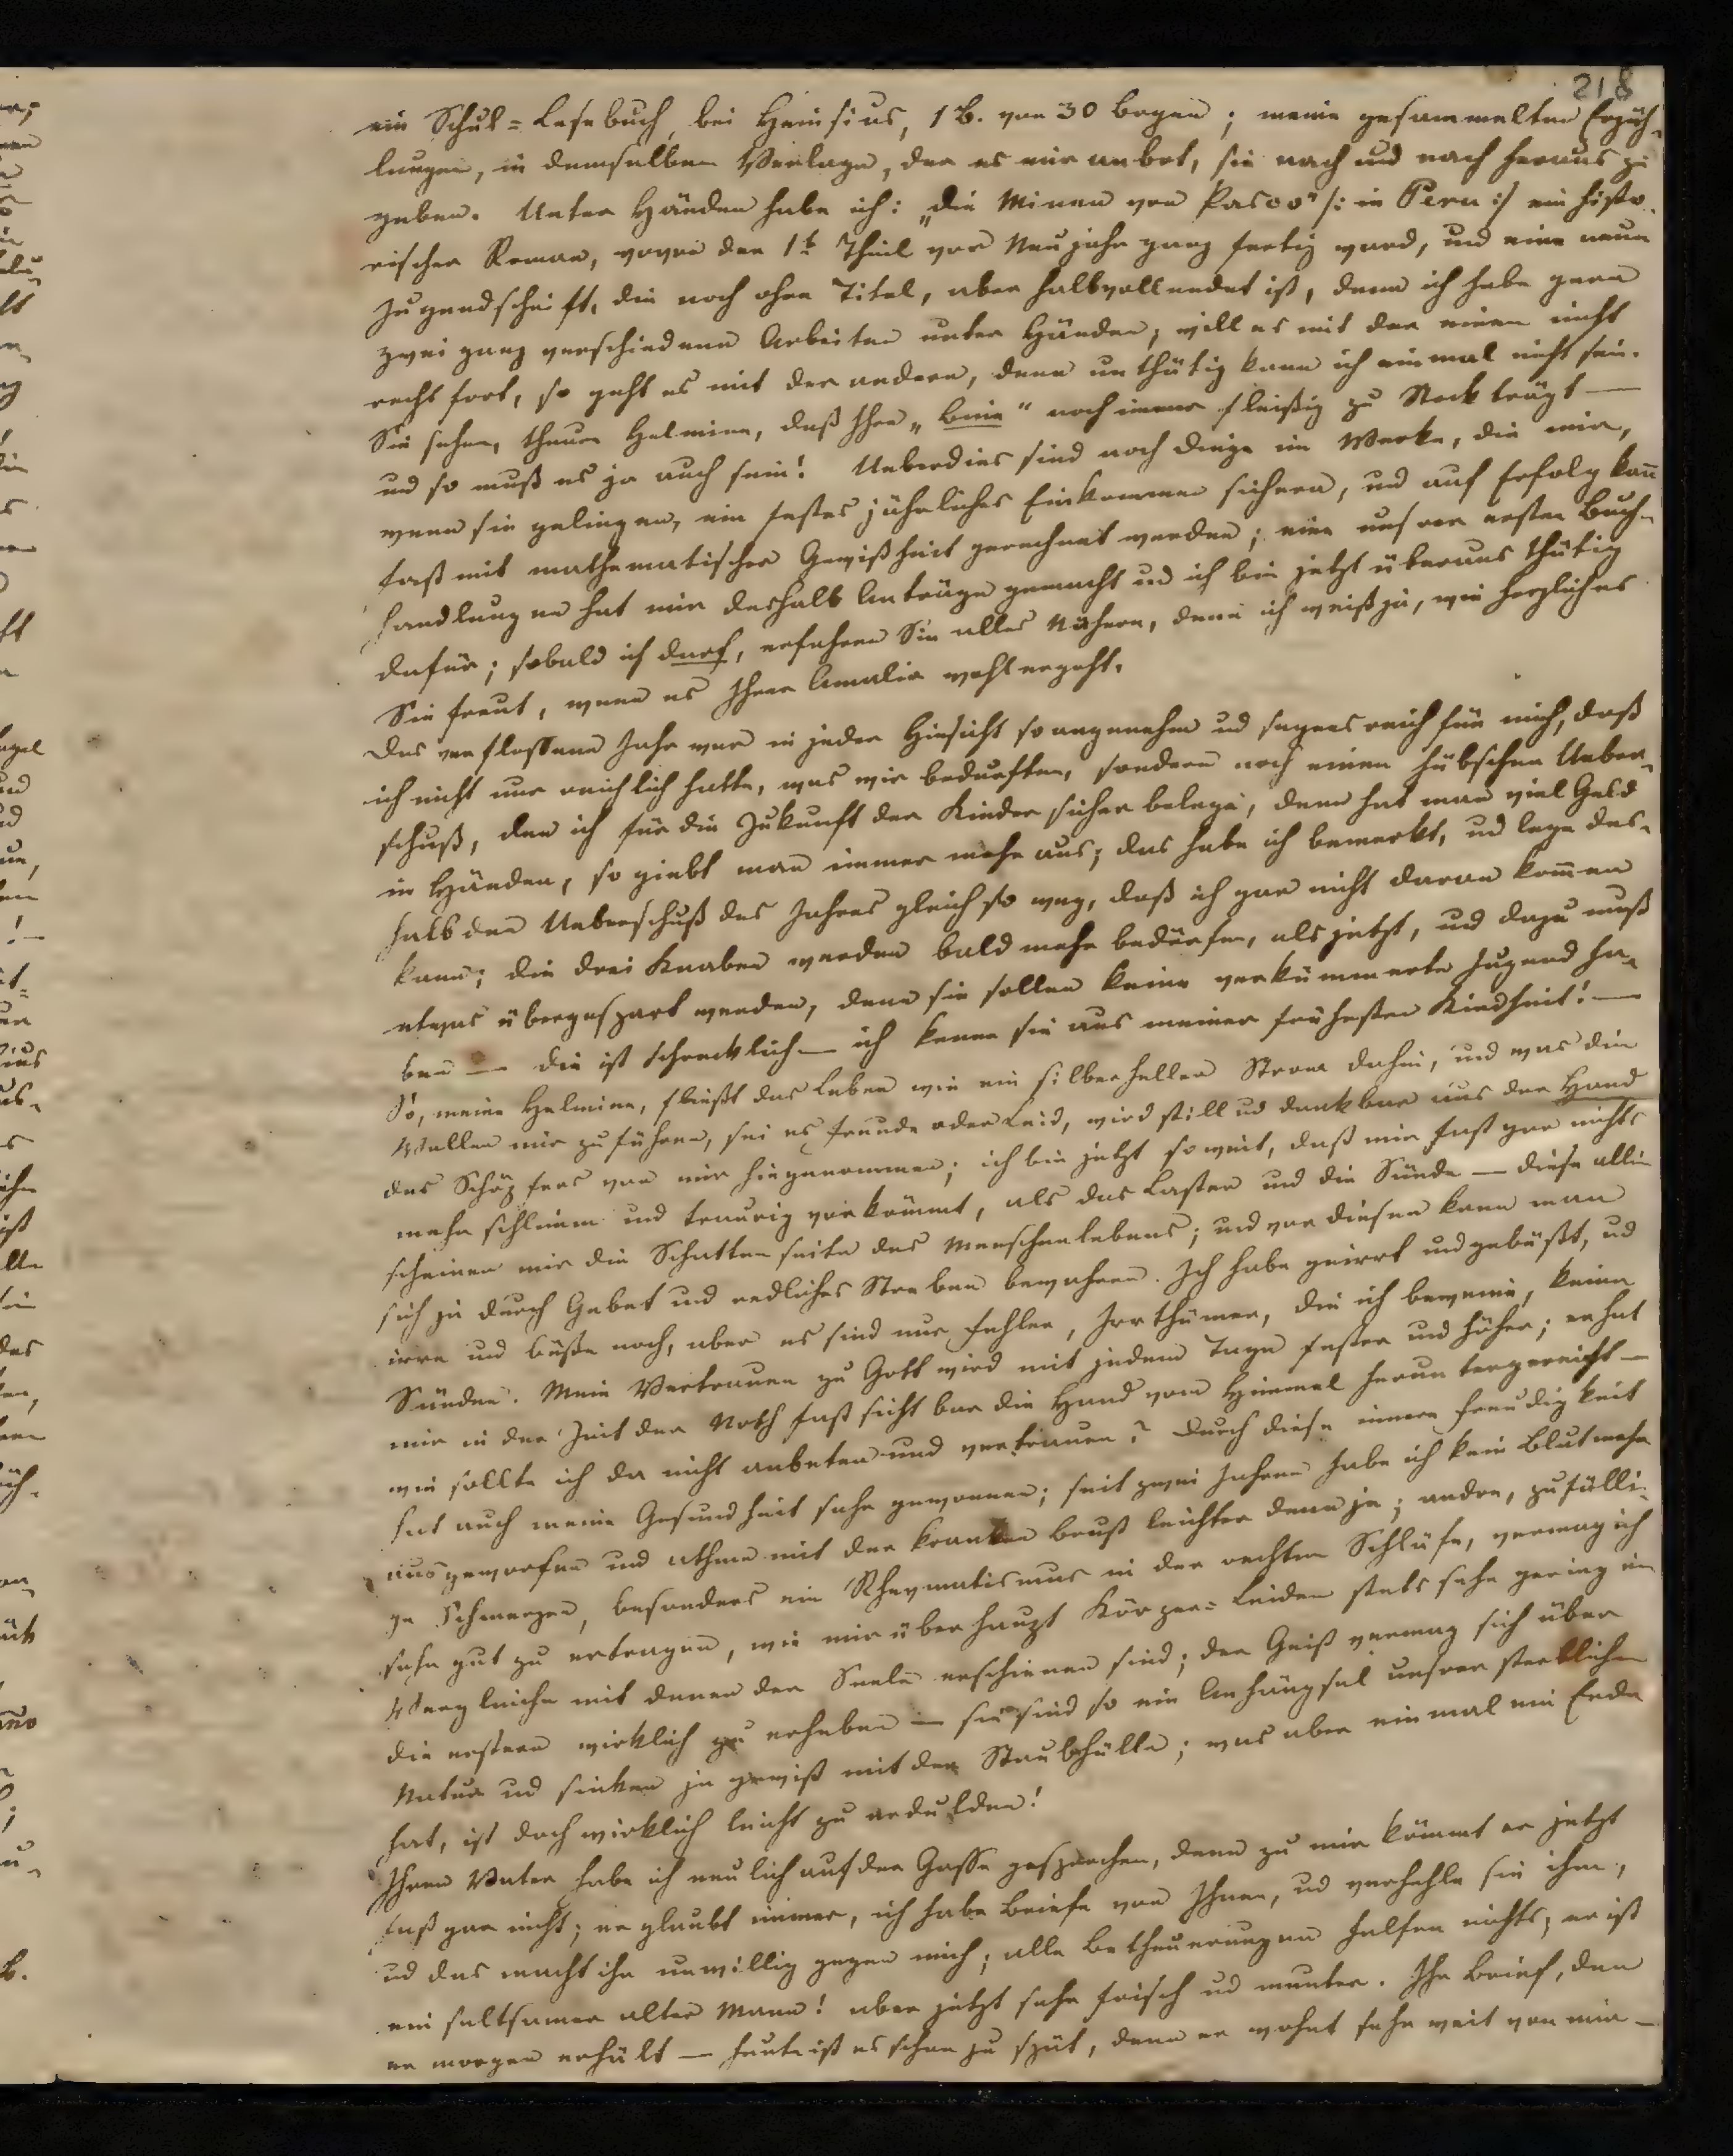 218
ein Schul=Lesebuch, bei Heinsius, 1 B. von 30 Bogen; meine gesammelten Erzäh-
lungen, in demselben Verlage, der es mir anbot, sie nach und nach heraus zu
geben. Unter Händen habe ich: „die Minen von Pasco" /: in Peru :/ ein histo-
rischer Roman, wovon der 1t Theil vor Neujahr ganz fertig ward, und eine neue
Jugendschrift, die noch ohne Titel, aber halbvollendet ist, denn ich habe gern
zwei ganz verschiedene Arbeiten unter Händen; will es mit der einen nicht
recht fort, so geht es mit der andern, denn unthätig kann ich einmal nicht sein.
Sie sehen, theure Helmina, daß Ihre „Biene" noch immer fleißig zu Stock trägt —
und so muß es ja auch sein! Ueberdies sind noch Dinge im Werke, die mir,
wenn sie gelingen, ein festes jährliches Einkommen sichern, und auf Erfolg kann
fast mit mathematischer Gewißheit gerechnet werden; eine unsrer ersten Buch-
handlungen hat mir deshalb Anträge gemacht und ich bin jetzt überaus thätig
dafür; sobald ich darf, erfahren Sie alles Nähere, denn ich weiß ja, wie herzlich es
Sie freut, wenn es Ihrer Amalia wohl ergeht.
Das verflossene Jahr war in jeder Hinsicht so angenehm und segensreich für mich, daß
ich nicht nur reichlich hatte, was wir bedurften, sondern noch einen hübschen Ueber-
schuß, den ich für die Zukunft der Kinder sicher belege, denn hat man viel Geld
in Händen, so giebt man immer mehr aus; das habe ich bemerkt, und lege des-
halb den Ueberschuß des Jahres gleich so weg, daß ich gar nicht daran kommen
kann; die drei Knaben werden bald mehr bedürfen, als jetzt, und dazu muß
etwas übergespart werden, denn sie sollen keine verkümmerte Jugend ha-
ben — die ist schrecklich — ich kenne sie aus meiner frühesten Kindheit! —
So, meine Helmina, fließt das Leben wie ein silberheller Strom dahin, und was die
Wellen mir zuführen, sei es Freude oder Leid, wird still und dankbar aus der Hand
des Schöpfers von mir hingenommen; ich bin jetzt so weit, daß mir fast gar nichts
mehr schlimm und traurig vorkömmt, als das Laster und die Sünde — diese allein
scheinen mir die Schattenseite des Menschenlebens; und vor diesen kann man
sich ja durch Gebet und redliches Streben bewahren. Ich habe geirrt und gebüßt, und
irre und büße noch, aber es sind nur Fehler, Irrthümer, die ich beweine, keine
Sünden. Mein Vertrauen zu Gott wird mit jedem Tage fester und höher; er hat
mir in der Zeit der Noth fast sichtbar die Hand vom Himmel heruntergereicht —
wie sollte ich da nicht anbeten und vertrauen? Durch diese innere Freudigkeit
hat auch meine Gesundheit sehr gewonnen; seit zwei Jahren habe ich kein Blut mehr
ausgeworfen und athme mit der kranken Brust leichter denn je; andre, zufälli-
ge Schmerzen, besonders ein Rheymatismus in der rechten Schläfe, vermag ich
sehr gut zu ertragen, wie mir überhaupt Körper=Leiden stets sehr gering im
Vergleiche mit denen der Seele erschienen sind; der Geist vermag sich über
die erstern wirklich zu erheben — sie sind so ein Anhängsel unsrer sterblichen
Natur und sinken ja gewiß mit der Staubhülle; was aber einmal ein Ende
hat, ist doch wirklich leicht zu erdulden!
Ihren Vater habe ich neulich auf der Gasse gesprochen, denn zu mir kömmt er jetzt
fast gar nicht; er glaubt immer, ich habe Briefe von Ihnen, und verhehle sie ihm,
und das macht ihn unwillig gegen mich; alle Betheuerungen helfen nichts; er ist
ein seltsamer alter Mann! aber jetzt sehr frisch und munter. Ihr Brief, den
er morgen erhält — heute ist es schon zu spät, denn er wohnt sehr weit von mir —